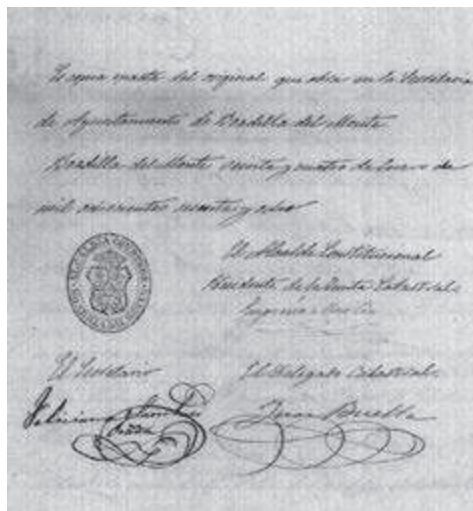 Es copia exacta del original que obra en la Secretaria
de Ayuntamiento de Boadilla del Monte
Boadilla del Monte veinte y cuatro de Enero de
mil ochocientos noventa y ocho
El Alcalde Constitucional
Presidente de la Junta Catastral
Eugenio
El Secretario
El Delegado Catastral
Feliciano
Juan